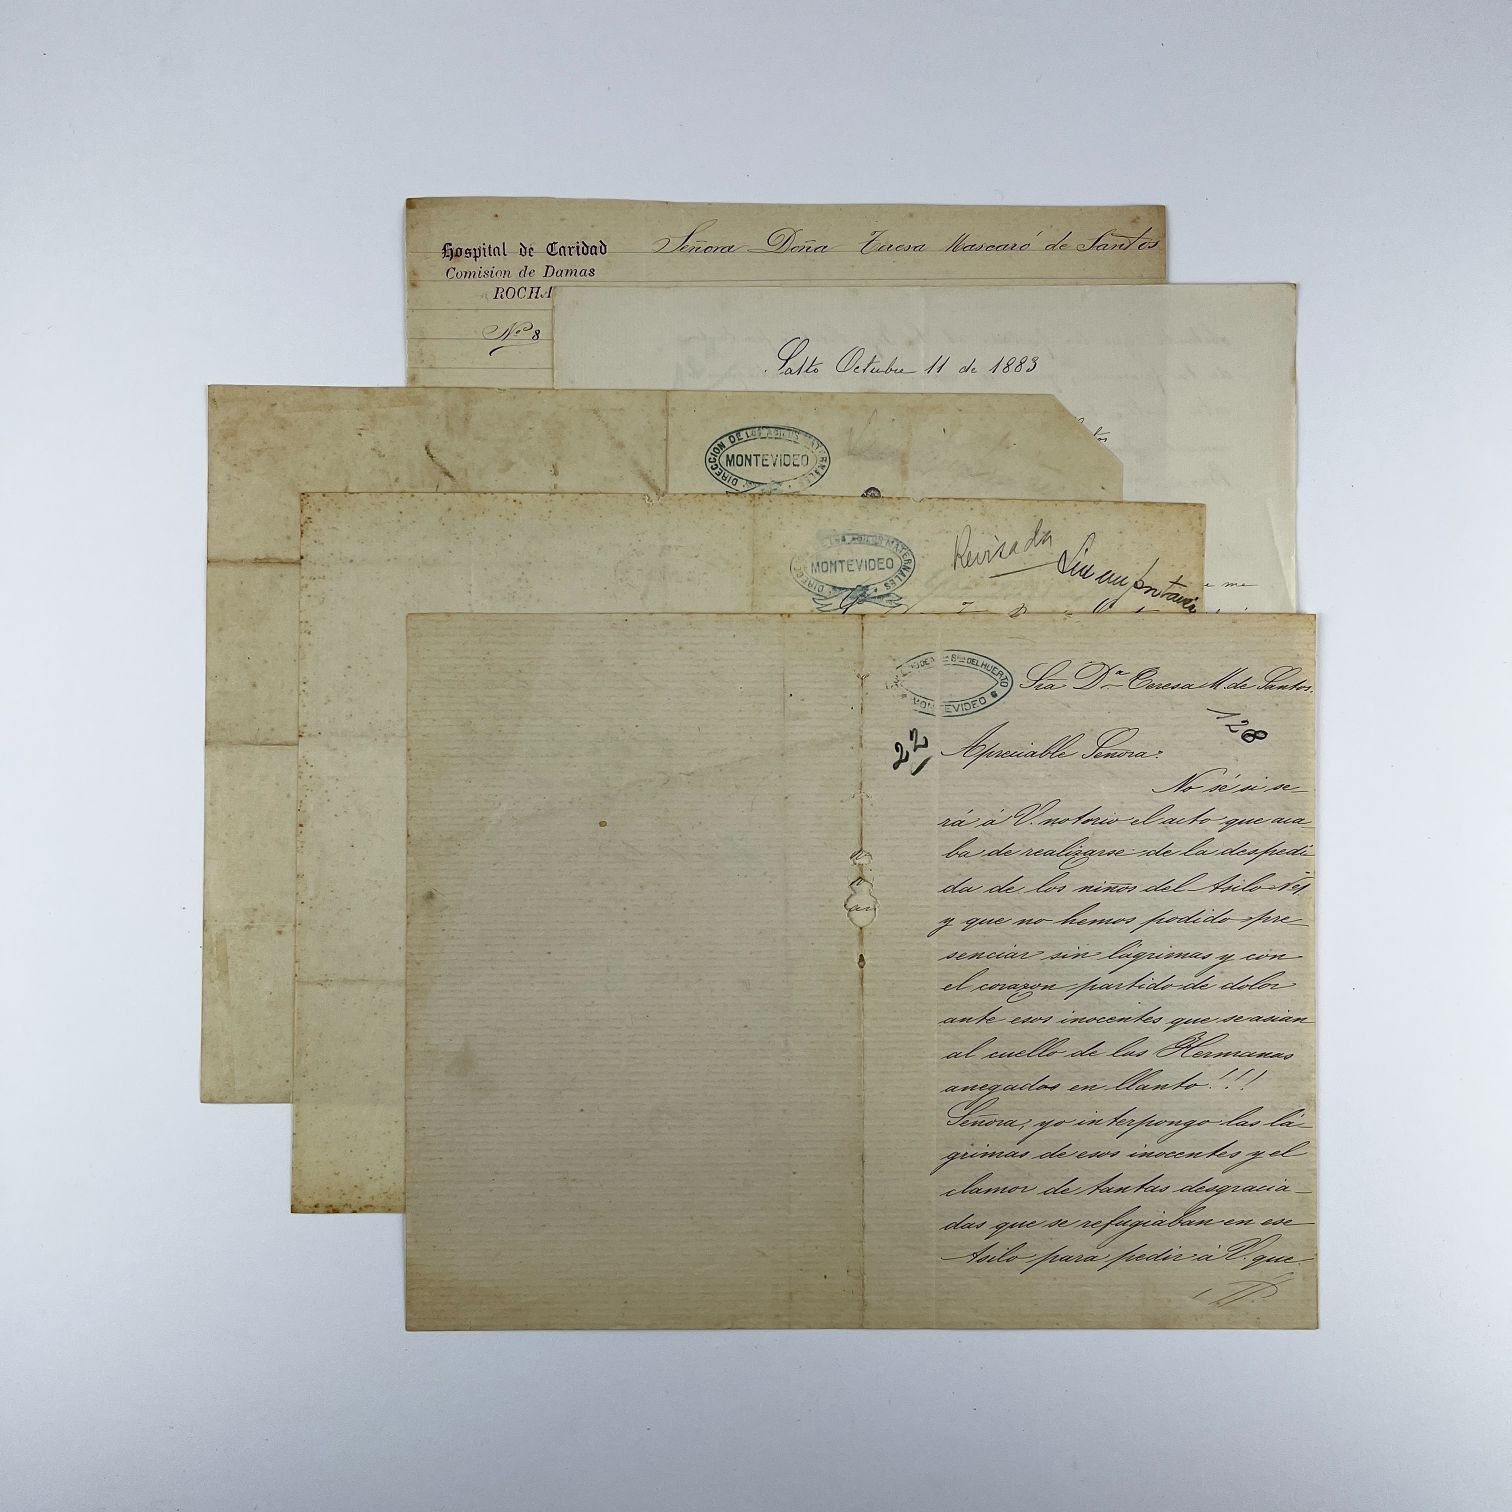 Hospital de Caridad
Comision de Damas
ROCHA
Nº 8
Señora Doña Teresa Mascaró de Santos
Salto Octubre 11 de 1883
DIRECCION DE LOS ASILOS MATERNALES
MONTEVIDEO
ASILOS MATERNALES
MONTEVIDEO
Revisada
e me
DEL HUERTO
MONTEVIDEO
Sra Dª Teresa M. de Santos.
128
22
Apreciable Señora:
No sé si se-
rá á V. notorio el acto que aca-
ba de realizarse de la despedi
da de los niños del Asilo Nº 1
y que no hemos podido pre-
senciar sin lágrimas y con
el corazon partido de dolor
ante esos inocentes que se asian
al cuello de las Hermanas
anegados en llanto!!!
Señora; yo interpongo las lá-
grimas de esos inocentes y el
clamor de tantas desgracia-
das que se refugiaban en ese
Asilo para pedir á V. que